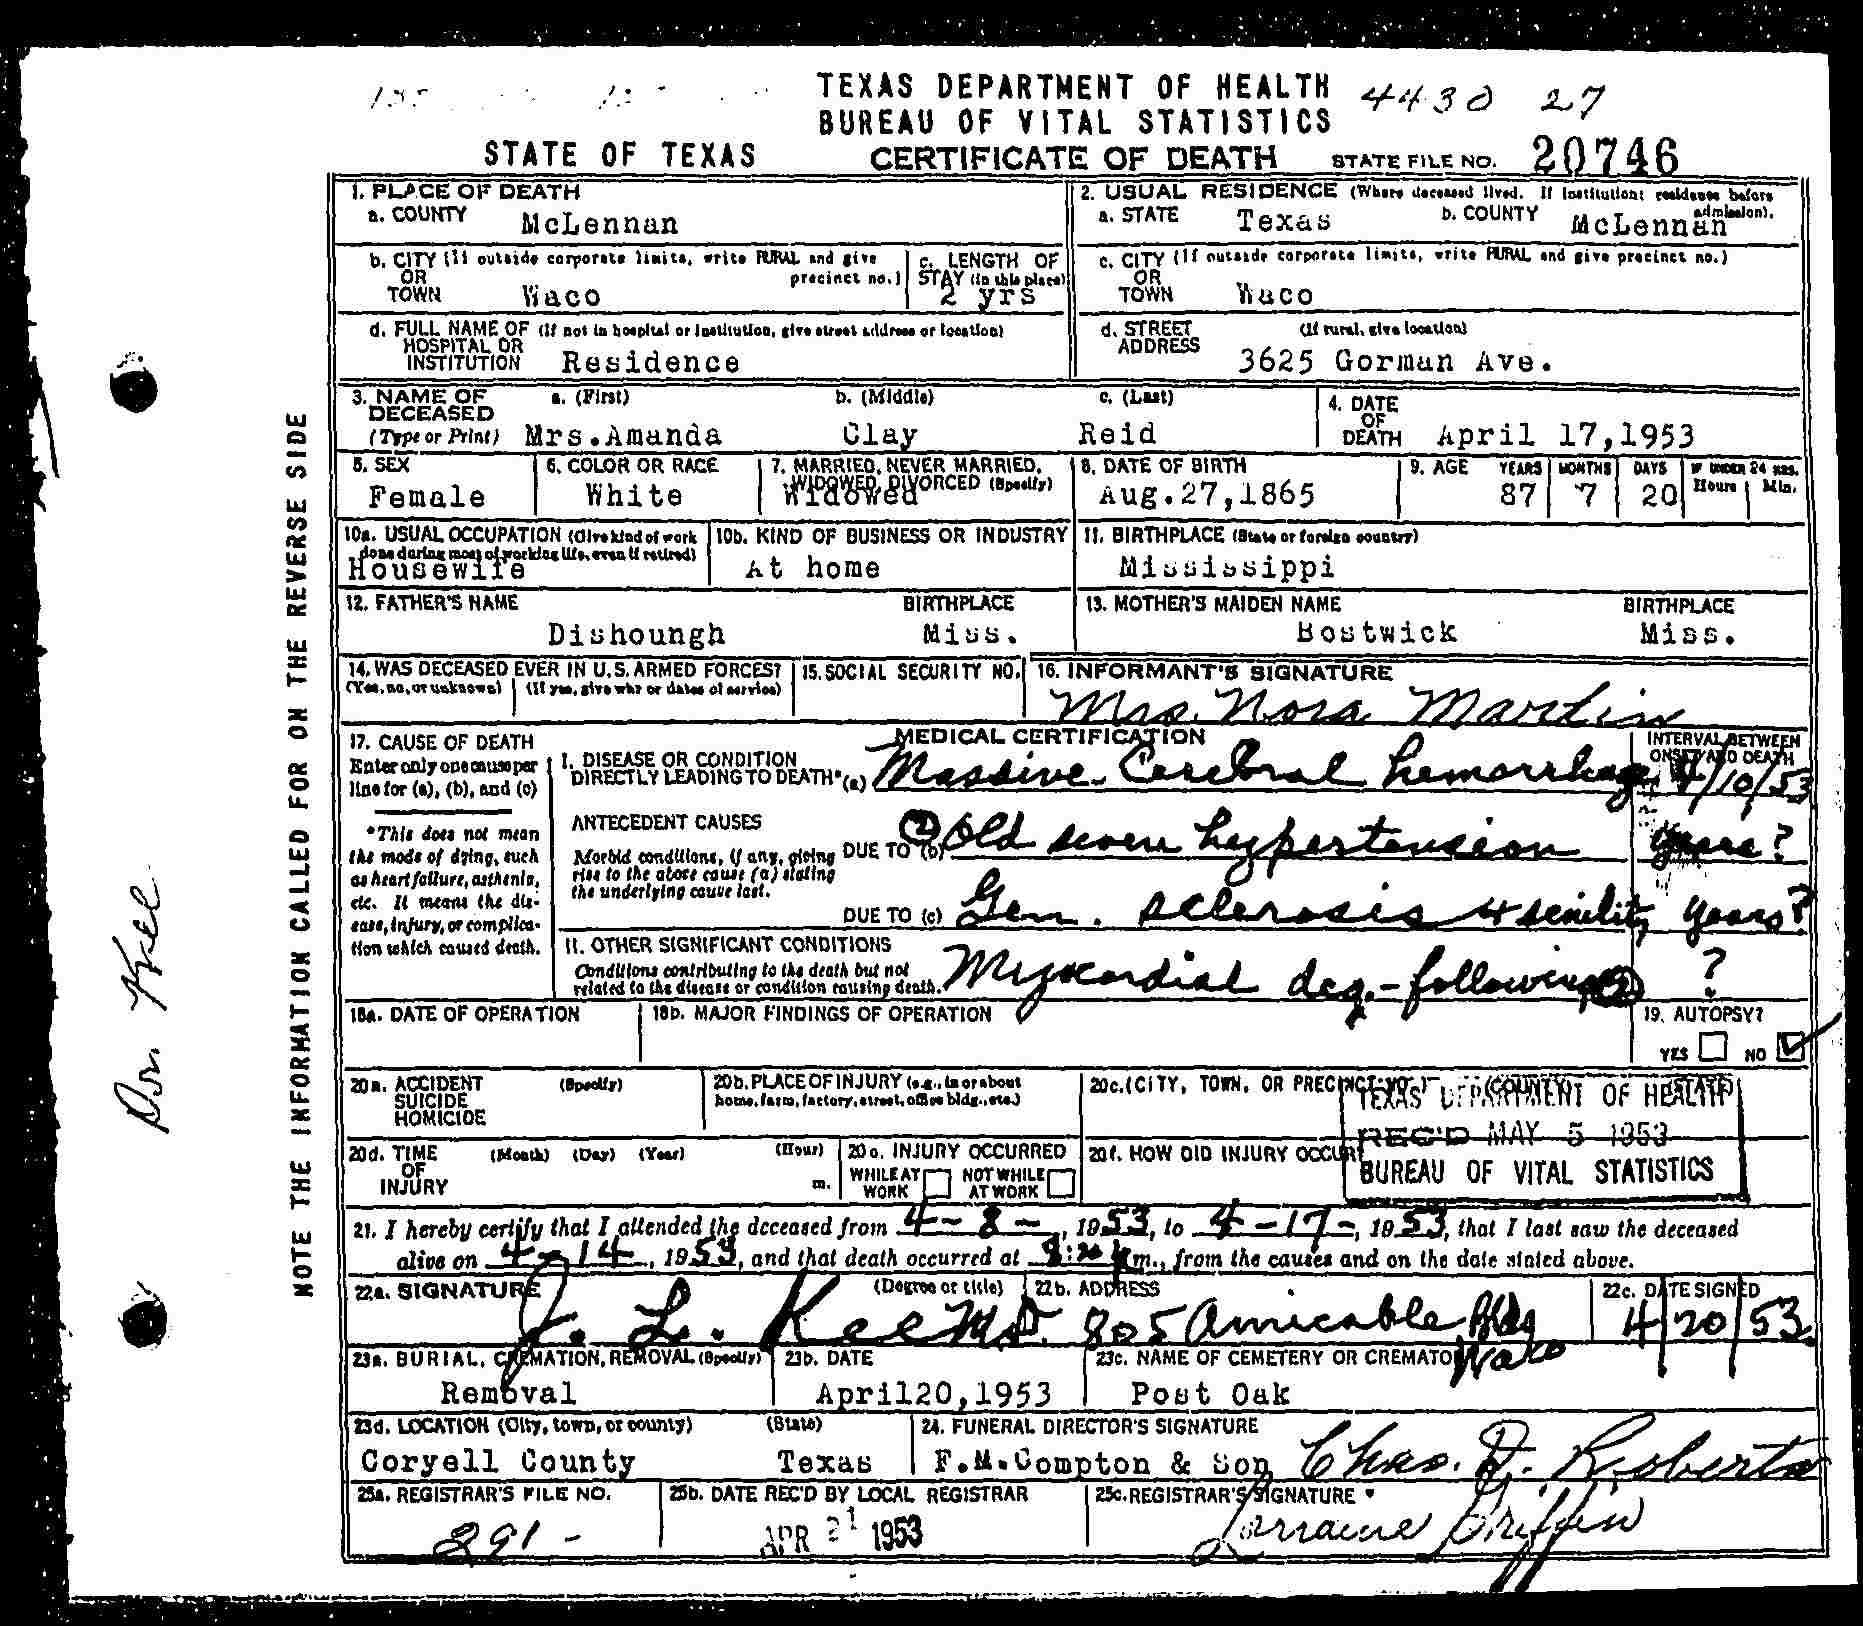 TEXAS DEPARTMENT OF HEALTH
4430 27
BUREAU OF VITAL STATISTICS
STATE OF TEXAS
CERTIFICATE OF DEATH
STATE FILE NO. 20746
NOTE THE INFORMATION CALLED FOR ON THE REVERSE SIDE
Dr. Kee
1. PLACE OF DEATH
a. COUNTY McLennan
2. USUAL RESIDENCE (Where deceased lived. If institution: residence before admission).
a. STATE Texas b. COUNTY McLennan
b. CITY (If outside corporate limits, write RURAL and give precinct no.)
OR
TOWN Waco
c. LENGTH OF
STAY (in this place)
2 yrs
c. CITY (If outside corporate limits, write RURAL and give precinct no.)
OR
TOWN Waco
d. FULL NAME OF (If not in hospital or institution, give street address or location)
HOSPITAL OR
INSTITUTION Residence
d. STREET (If rural, give location)
ADDRESS 3625 Gorman Ave.
3. NAME OF a. (First) b. (Middle) c. (Last)
DECEASED
(Type or Print) Mrs.Amanda Clay Reid
4. DATE
OF
DEATH April 17,1953
5. SEX
Female
6. COLOR OR RACE
White
7. MARRIED, NEVER MARRIED,
WIDOWED, DIVORCED (Specify)
Widowed
8. DATE OF BIRTH
Aug.27,1865
9. AGE YEARS MONTHS DAYS IF UNDER 24 HRS.
Hours Min.
87 7 20
10a. USUAL OCCUPATION (Give kind of work
done during most of working life, even if retired)
Housewife
10b. KIND OF BUSINESS OR INDUSTRY
At home
11. BIRTHPLACE (State or foreign country)
Mississippi
12. FATHER'S NAME BIRTHPLACE
Dishoungh Miss.
13. MOTHER'S MAIDEN NAME BIRTHPLACE
Bostwick Miss.
14. WAS DECEASED EVER IN U.S. ARMED FORCES?
(Yes, no, or unknown) (If yes, give war or dates of service)
15. SOCIAL SECURITY NO.
16. INFORMANT'S SIGNATURE
Mrs. Nora Martin
17. CAUSE OF DEATH
Enter only one cause per
line for (a), (b), and (c)
*This does not mean
the mode of dying, such
as heart failure, asthenia,
etc. It means the dis-
ease, injury, or complica-
tion which caused death.
MEDICAL CERTIFICATION
INTERVAL BETWEEN
ONSET AND DEATH
I. DISEASE OR CONDITION
DIRECTLY LEADING TO DEATH* (a) Massive Cerebral hemorrhage 4/10/53
ANTECEDENT CAUSES
Morbid conditions, if any, giving
rise to the above cause (a) stating
the underlying cause last.
DUE TO (b) ② Old severe hypertension years?
DUE TO (c) Gen. sclerosis & senility years?
II. OTHER SIGNIFICANT CONDITIONS
Conditions contributing to the death but not
related to the disease or condition causing death.
Myocardial deg. - following ② ?
18a. DATE OF OPERATION
18b. MAJOR FINDINGS OF OPERATION
19. AUTOPSY?
YES NO
20a. ACCIDENT (Specify)
SUICIDE
HOMICIDE
20b. PLACE OF INJURY (e.g., in or about
home, farm, factory, street, office bldg., etc.)
20c. (CITY, TOWN, OR PRECINCT NO.) (COUNTY) (STATE)
TEXAS DEPARTMENT OF HEALTH
REC'D MAY 5 1953
BUREAU OF VITAL STATISTICS
20d. TIME (Month) (Day) (Year) (Hour)
OF
INJURY m.
20e. INJURY OCCURRED
WHILE AT WORK NOT WHILE AT WORK
20f. HOW DID INJURY OCCUR?
21. I hereby certify that I attended the deceased from 4-8-, 1953, to 4-17-, 1953, that I last saw the deceased
alive on 4-14, 1953, and that death occurred at m., from the causes and on the date stated above.
22a. SIGNATURE (Degree or title)
J. L. Kee M.D.
22b. ADDRESS
805 Amicable Bldg
Waco
22c. DATE SIGNED
4/20/53.
23a. BURIAL, CREMATION, REMOVAL (Specify)
Removal
23b. DATE
April20,1953
23c. NAME OF CEMETERY OR CREMATO
Post Oak
23d. LOCATION (City, town, or county) (State)
Coryell County Texas
24. FUNERAL DIRECTOR'S SIGNATURE
F.M.Compton & Son Chas. D. Roberts
25a. REGISTRAR'S FILE NO.
291-
25b. DATE REC'D BY LOCAL REGISTRAR
APR 21 1953
25c. REGISTRAR'S SIGNATURE
Lorraine Griffin